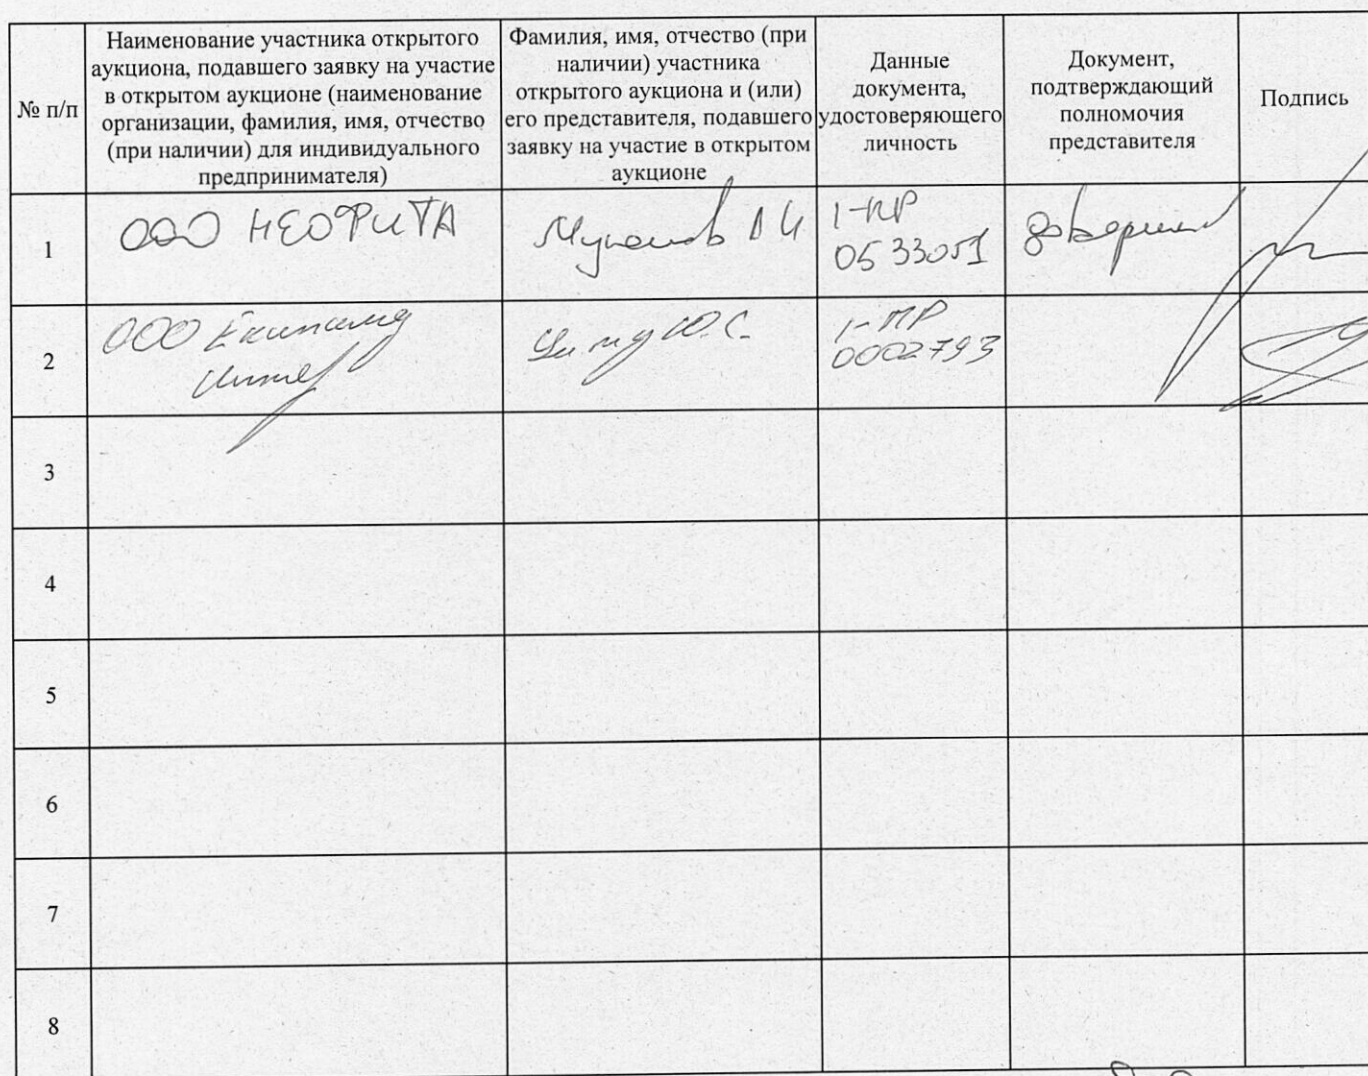 № п/п
Наименование участника открытого
аукциона, подавшего заявку на участие
в открытом аукционе (наименование
организации, фамилия, имя, отчество
(при наличии) для индивидуального
предпринимателя)
Фамилия, имя, отчество (при
наличии) участника
открытого аукциона и (или)
его представителя, подавшего
заявку на участие в открытом
аукционе
Данные
документа,
удостоверяющего
личность
Документ,
подтверждающий
полномочия
представителя
Подпись
1
ООО НЕОФИТА
1-ПР
0533051
2
ООО
Ю.С.
1-ПР
0002793
3
4
5
6
7
8